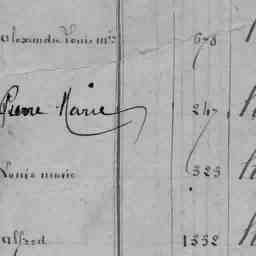 Alexandre Louis Mie 678
Pierre Marie 247
Louis marie 323
Alfred 1332